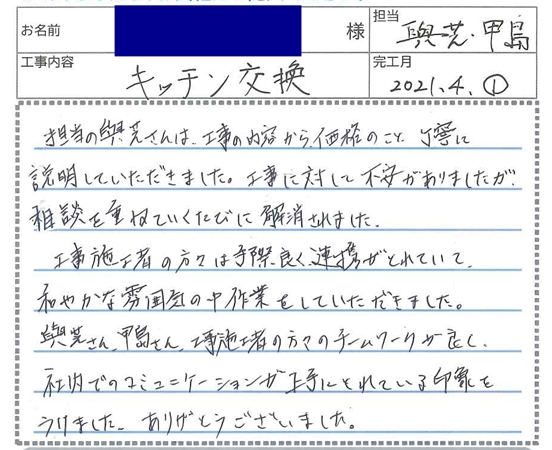 お名前
様
担当
與芝・甲島
工事内容
キッチン交換
完工月
2021.4.①
担当の與芝さんは、工事の内容から価格のこと、丁寧に
説明していただきました。工事に対して不安がありましたが、
相談を重ねていくたびに解消されました。
工事施工者の方々は手際良く、連携がとれていて、
和やかな雰囲気の中作業をしていただきました。
與芝さん、甲島さん、工事施工者の方々のチームワークが良く、
社内でのコミュニケーションが上手にとれている印象を
うけました。ありがとうございました。